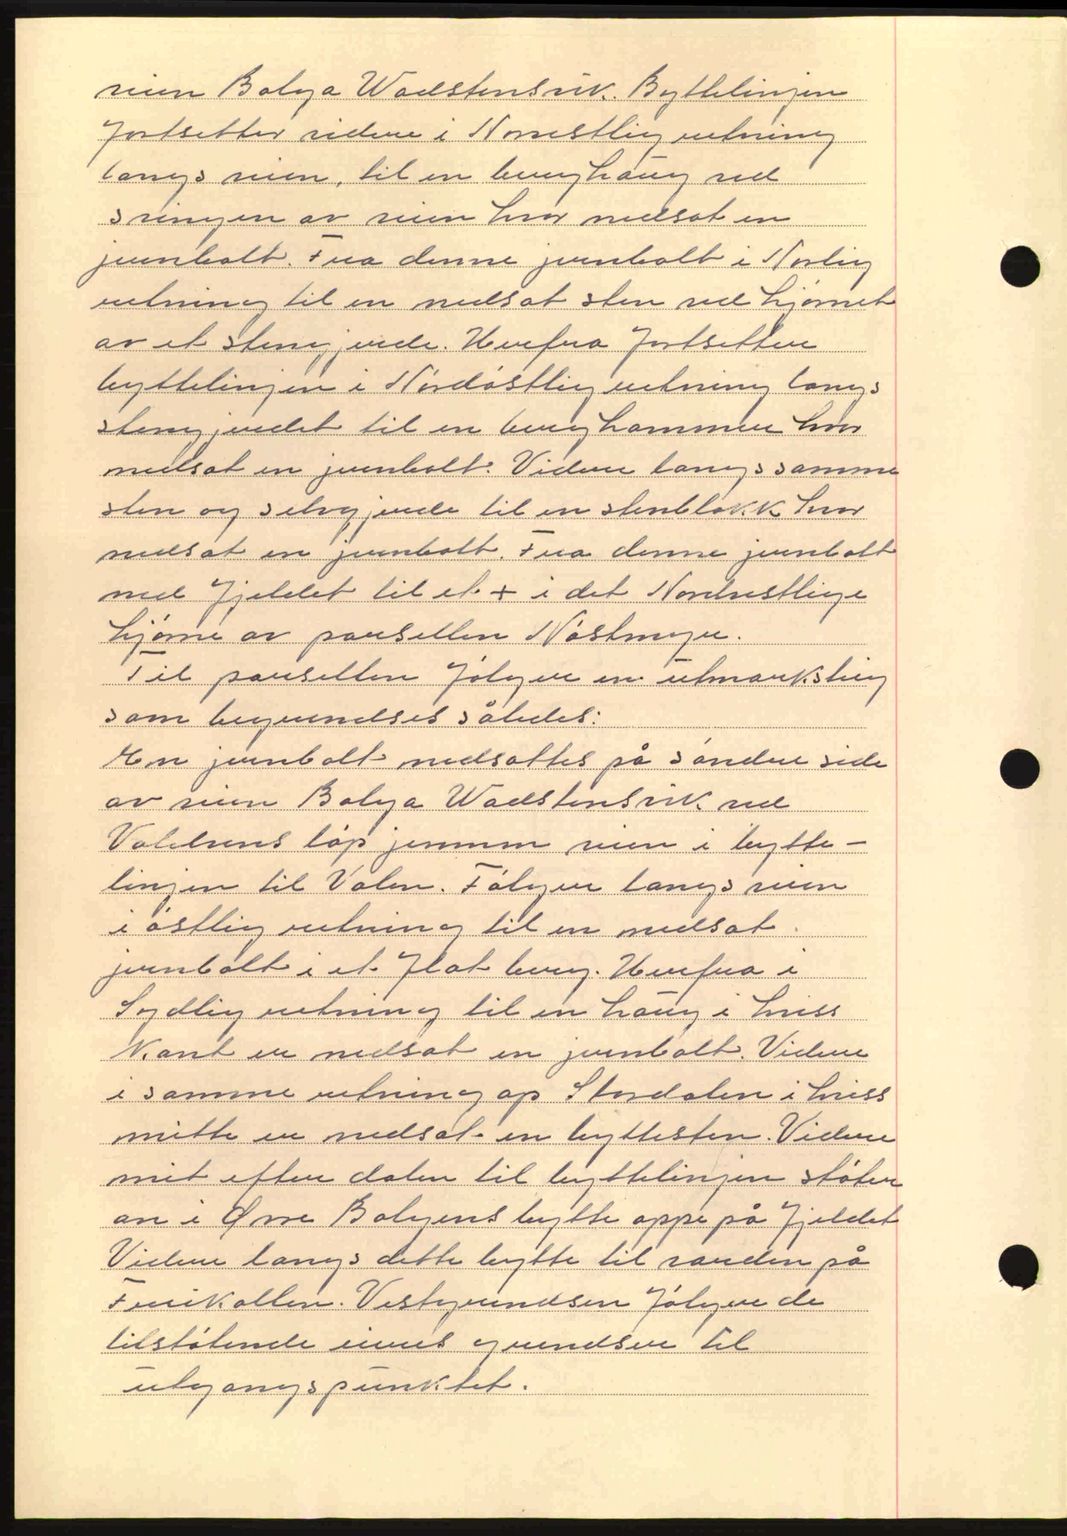 veien Bolga Wadstensvik. Byttelinjen
fortsetter videre i Norvestlig retning
langs veien, til en berghaug ved
svingen av veien hvor nedsat en
jernbolt. Fra denne jernbolt i Norlig
retning til en nedsat sten ved hjørnet
av et stengjerde. Herfra fortsetter
byttelinjen i Nordøstlig retning langs
stengjerdet til en berghammer hvor
nedsat en jernbolt. Videre langs samme
sten og selvgjerde til en stenblokk hvor
nedsat en jernbolt. Fra denne jernbolt
ned fjeldet til et + i det Nordvestlige
hjørne av parsellen Nøstmyr.
Til parsellen følger en utmarksteig
som begrendses således:
En jernbolt nedsattes på søndre side
av veien Bolga Wadstensvik ved
Valelvens løp jennem veien i bytte-
linjen til Valen. Følger langs veien
i østlig retning til en nedsat
jernbolt i et flat berg. Herfra i
Sydlig retning til en haug i hviss
Kant er nedsat en jernbolt. Videre
i samme retning op Stordalen i hviss
mitte er nedsat en byttesten. Videre
mit efter dalen til byttelinjen støter
an i Øvre Bolgens bytte oppe på fjeldet
Videre langs dette bytte til randen på
Furikollen. Vestgrendsen følger de
tilstøtende eiers grendser til
utgangspunktet.